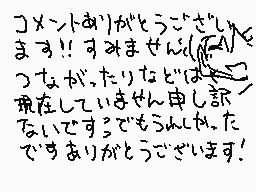 コメントありがとうござい
ます!!すみません
つながったりなどは
現在していません申し訳
ないです:;でもうれしかった
ですありがとうございます!